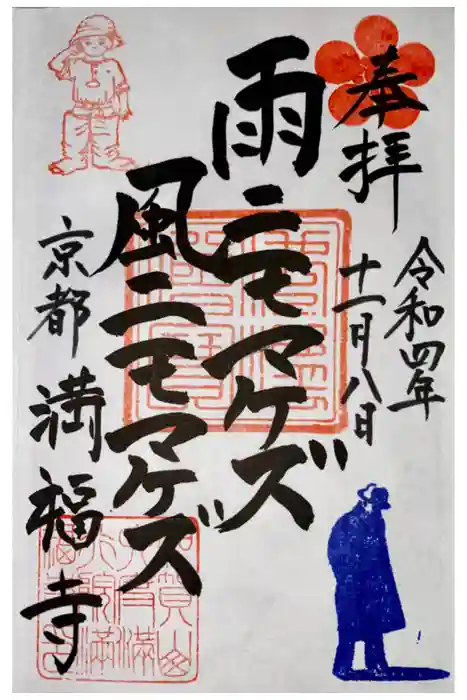 奉拝
令和四年
十一月八日
雨ニモマケズ
風ニモマケズ
京都 満福寺